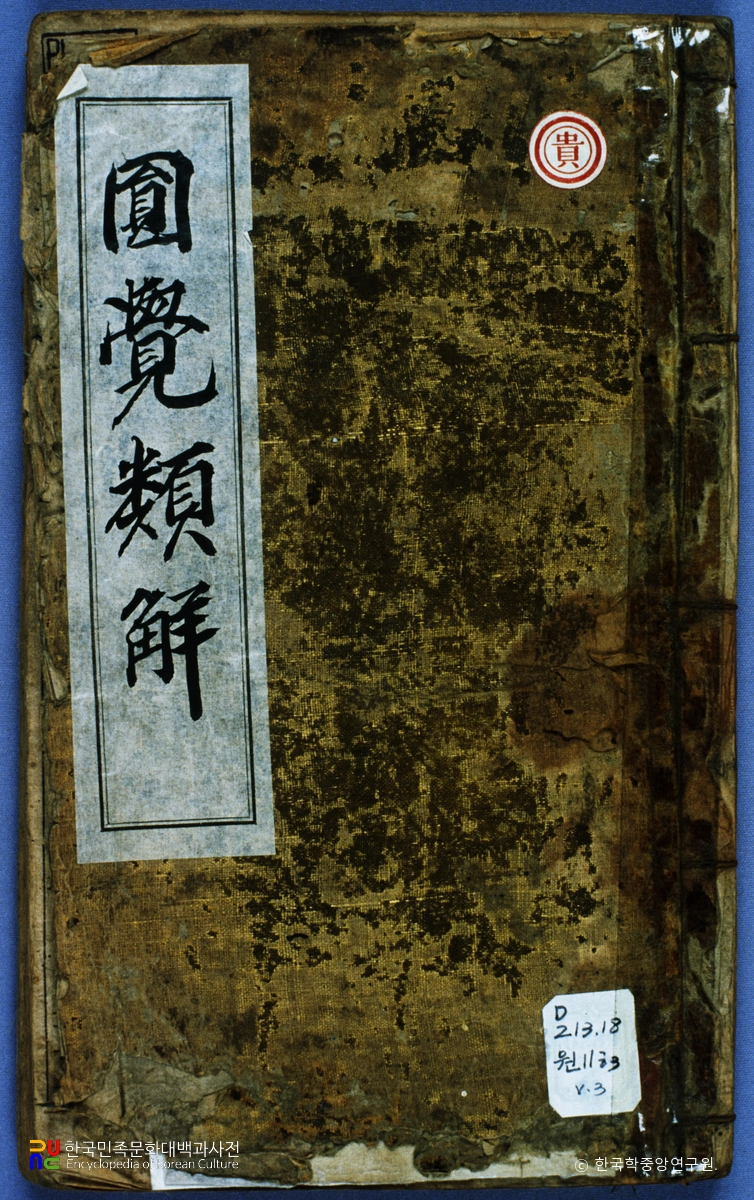 圓覺類解
貴
D
213.18
원11ㅎㅎ
v.3
한국민족문화대백과사전
Encyclopedia of Korean Culture
© 한국학중앙연구원.